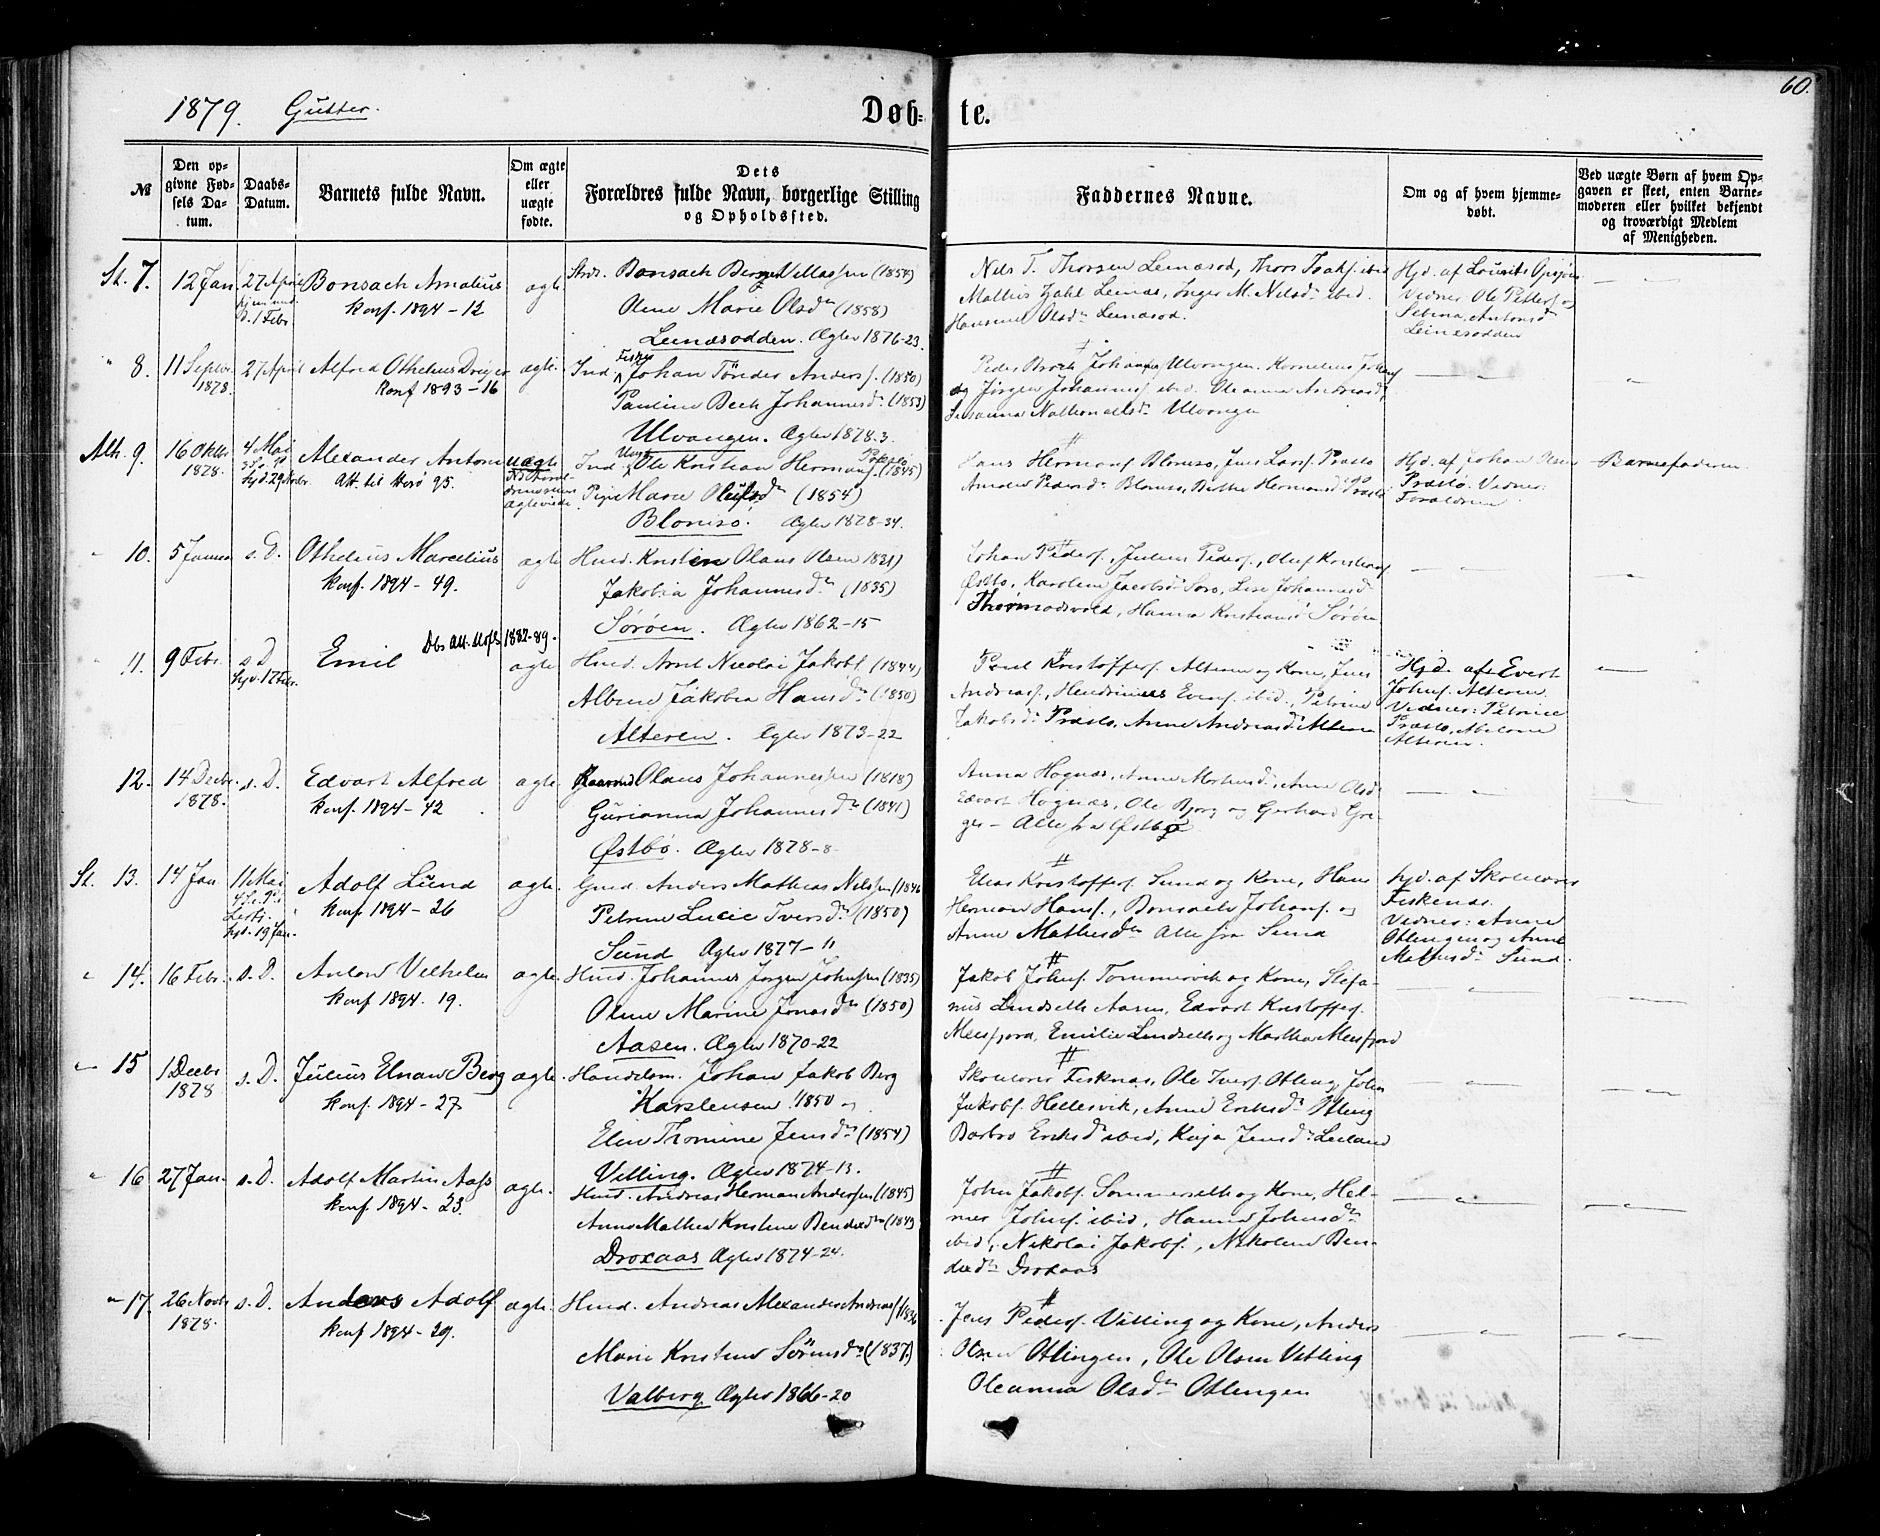 60.
1879. Gutter.
Døb-te.
№
Den opgivne Fødsels Datum.
Daabs-Datum.
Barnets fulde Navn.
Om ægte eller uægte fødte.
Dets Forældres fulde Navn, borgerlige Stilling og Opholdssted.
Faddernes Navne.
Om og af hvem hjemmedøbt.
Ved uægte Børn af hvem Opgaven er skeet, enten Barnemoderen eller hvilket bekjendt og troværdigt Medlem af Menigheden.
St. 7. 12 Jan 27 April Bonsach Amatius ægte
1 Febr.
Konf. 1894-12
Oline Marie Olsdtr (1858)
Leinæsodden. Ægtev 1876-23.
Nils T. Thorsen Leinæsod, Thors Isaks. ibid
Mathis Leinæs, Inger M. Nilsdtr ibid.
Hansine Olsdtr Leinæsod.
Hjd. af Lourits
Vidner Ole Petters. og
Leinesodden
" 8. 11 Septbr. 1878. 27 April Alfred Othelius Dreyer ægte.
Konf 1893-16
Ind. Fisker Johan Tønder Anders. (1850)
Pauline Bech Johannesdtr (1853)
Ulvangen. Ægtev 1878.3
Peder Broch Johans. Ulvangen. Kornelius Johns
og Jørgen Johanness. ibid. Oleanna Andreasd.
Susanna Ulvangen
Alh. 9. 16 Oktbr 1878. 4 Mai Alexander Anton uægte
Att. til Herø 95.
Ind. Ungk Ole Kristian Hermans. (1845)
Pige Marie Olufsdtr (1854)
Blomsø. Ægtev 1878-34.
Hans Hermans. Blomsø, Jens Lars. Præstø
Blomsø, Berthe Hermansd. Præstø
Hjd. af Johan Olsen
Præstø. Vidner:
Forældrene
Barnefaderen
" 10. 5 Januar s. D. Othelius Marcelius ægte
Konf. 1894-49.
Husd. Kristen Olaus Olsen
Jakobia Johannesdtr (1835)
Sørøen. Ægtev 1862-15
Johan Peders., Julius Peders., Oluf Kristians.
Østbø, Karoline Jacobsd. Sørø, Lise Johannesd
Thormodsvold, Hanna Kristiansd Sørøen
" 11. 9 Febr. s. D. Emil ægte
Hjd. 17 Febr.
Dbs att. Mofs 1882-89.
Husd. Arnt Nicolai Jakobs. (1844)
Albine Jakobia Hansdtr (1850)
Alteren. Ægtev 1873-22
Paul Kristoffers. Alteren og Kone, Jens
Andreass., ibid., Petrine
Jakobsd. Præstø, Anne Andreasd. Alteren
Hjd. af Evert
Johns. Alteren.
Vidner: Petrine
Præstø, Abelone
Alteren.
12. 14 Decbr. 1878. s. D. Edvart Alfred ægte.
Konf. 1894-42
Olaus Johannessen (1818)
Gurianna Johannesdtr (1841)
Østbø. Ægtev 1878-8
Anna Høgnæs, Anne, Anne Olsd
Edvart Høgnæs, Ole Bjørg og Gerhard
Alle fra Østbø
St. 13. 14 Jan 11 Mai Adolf Lund ægte.
Hjd. 19 Jan.
Konf 1894-26
Gaard. Anders Mathias Nilssen (1846
Petrine Lucie Iversdtr (1850)
Sund Ægtev 1877-11
Elias Kristoffers. Sund og Kone, Hans
Herman Hans., Bonsach Johans. og
Anne Mathisdtr Alle fra Sund
hjd. af Skolelærer
Fiskenæs.
Vidner: Anne
Otlingen og Anne
Mathisdtr Sund.
" 14. 16 Febr. s. D. Anton Vilhelm ægte.
Konf 1894-19.
Husd. Johannes Jørgen Johnsen (1835)
Oline Marine Jonasdtr (1850)
Aasen. Ægtev 1870-22
Jakob Johns. Tommervik og Kone, Stefanus
Lindseth Aasen, Edvart Kristoffers.
Meisfjord, Emilie Lindseth og Martha Meisfjord
" 15 1 Decbr 1878 s. D. Julius Einar Berg ægte.
Konf. 1894-27
Handelsm. Johan Jakob Berg
Karstensen 1850 og
Elen Thomine Jensdtr (1854)
Vitling. Ægtev 1874-13.
Skolelærer Fisknæs, Ole Ivers. Otling, John
Jakobs. Hellesvik, Anne Eriksdtr Otling
Barbro Eriksdtr ibid, Kaja Jensdtr Leiland
" 16 27 Jan. s. D. Adolf Martin Aas ægte.
Konf. 1894-23.
Husd. Andreas Herman Anderssen (1845)
Anne Mathea Kristine Bendixdtr (1849
Droxaas Ægtev 1874-24.
John Jakobs. Sommerseth og Kone, Helmer
Johns. ibid, Hanna Johnsdtr
ibid, Nikolai Jakobs., Nikoline Bendixdtr
Droxaas
" 17. 26 Novbr 1878. s. D. Anders Adolf ægte.
Konf 1894-29.
Husd. Andreas Alexander Andreas. (1836
Marie Kristine Sørensdtr (1837.)
Valberg Ægtev 1866-20
Jens Peders. Vitling og Kone, Anders
Olsen Otlingen, Ole Olsen Vitling
Oleanna Olsdtr Otlingen